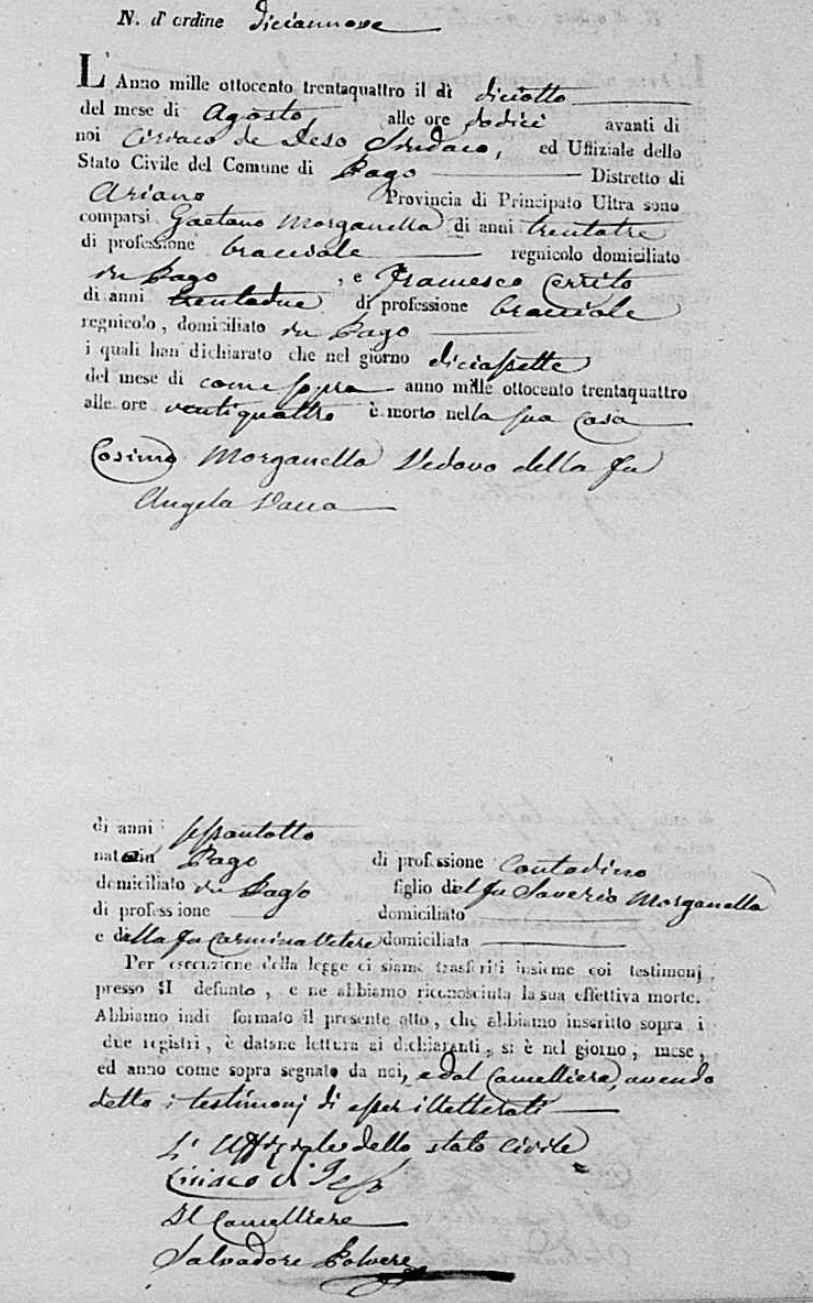 N. d' ordine diciannove
L' Anno mille ottocento trentaquattro il dì diciotto
del mese di Agosto alle ore dodici avanti di
noi Ciriaco de Sindaco, ed Uffiziale dello
Stato Civile del Comune di Pago Distretto di
Ariano Provincia di Principato Ultra sono
comparsi Gaetano Morganella di anni trentatre
di professione bracciale regnicolo domiciliato
in Pago , e Francesco Cerrito
di anni trentadue di professione bracciale
regnicolo, domiciliato in Pago
i quali han dichiarato che nel giorno diciassette
del mese di come sopra anno mille ottocento trentaquattro
alle ore ventiquattro è morto nella sua casa
Cosimo Morganella Vedovo della fu
Angela Vacca
di anni sessantotto
nato in Pago di professione contadino
domiciliato in Pago figlio del fu Saverio Morganella
di professione domiciliato
e della fu Carmina Vetere domiciliata
Per esecuzione della legge ci siamo trasferiti insieme coi testimonj
presso il defunto, e ne abbiamo riconosciuta la sua effettiva morte.
Abbiamo indi formato il presente atto, che abbiamo inscritto sopra i
due registri, e datane lettura ai dichiaranti, si è nel giorno, mese,
ed anno come sopra segnato da noi, e dal Cancelliere, avendo
detto i testimonj di esser illetterati
L' Uffiziale dello stato civile
Ciriaco
Il Cancelliere
Salvadore Polvere